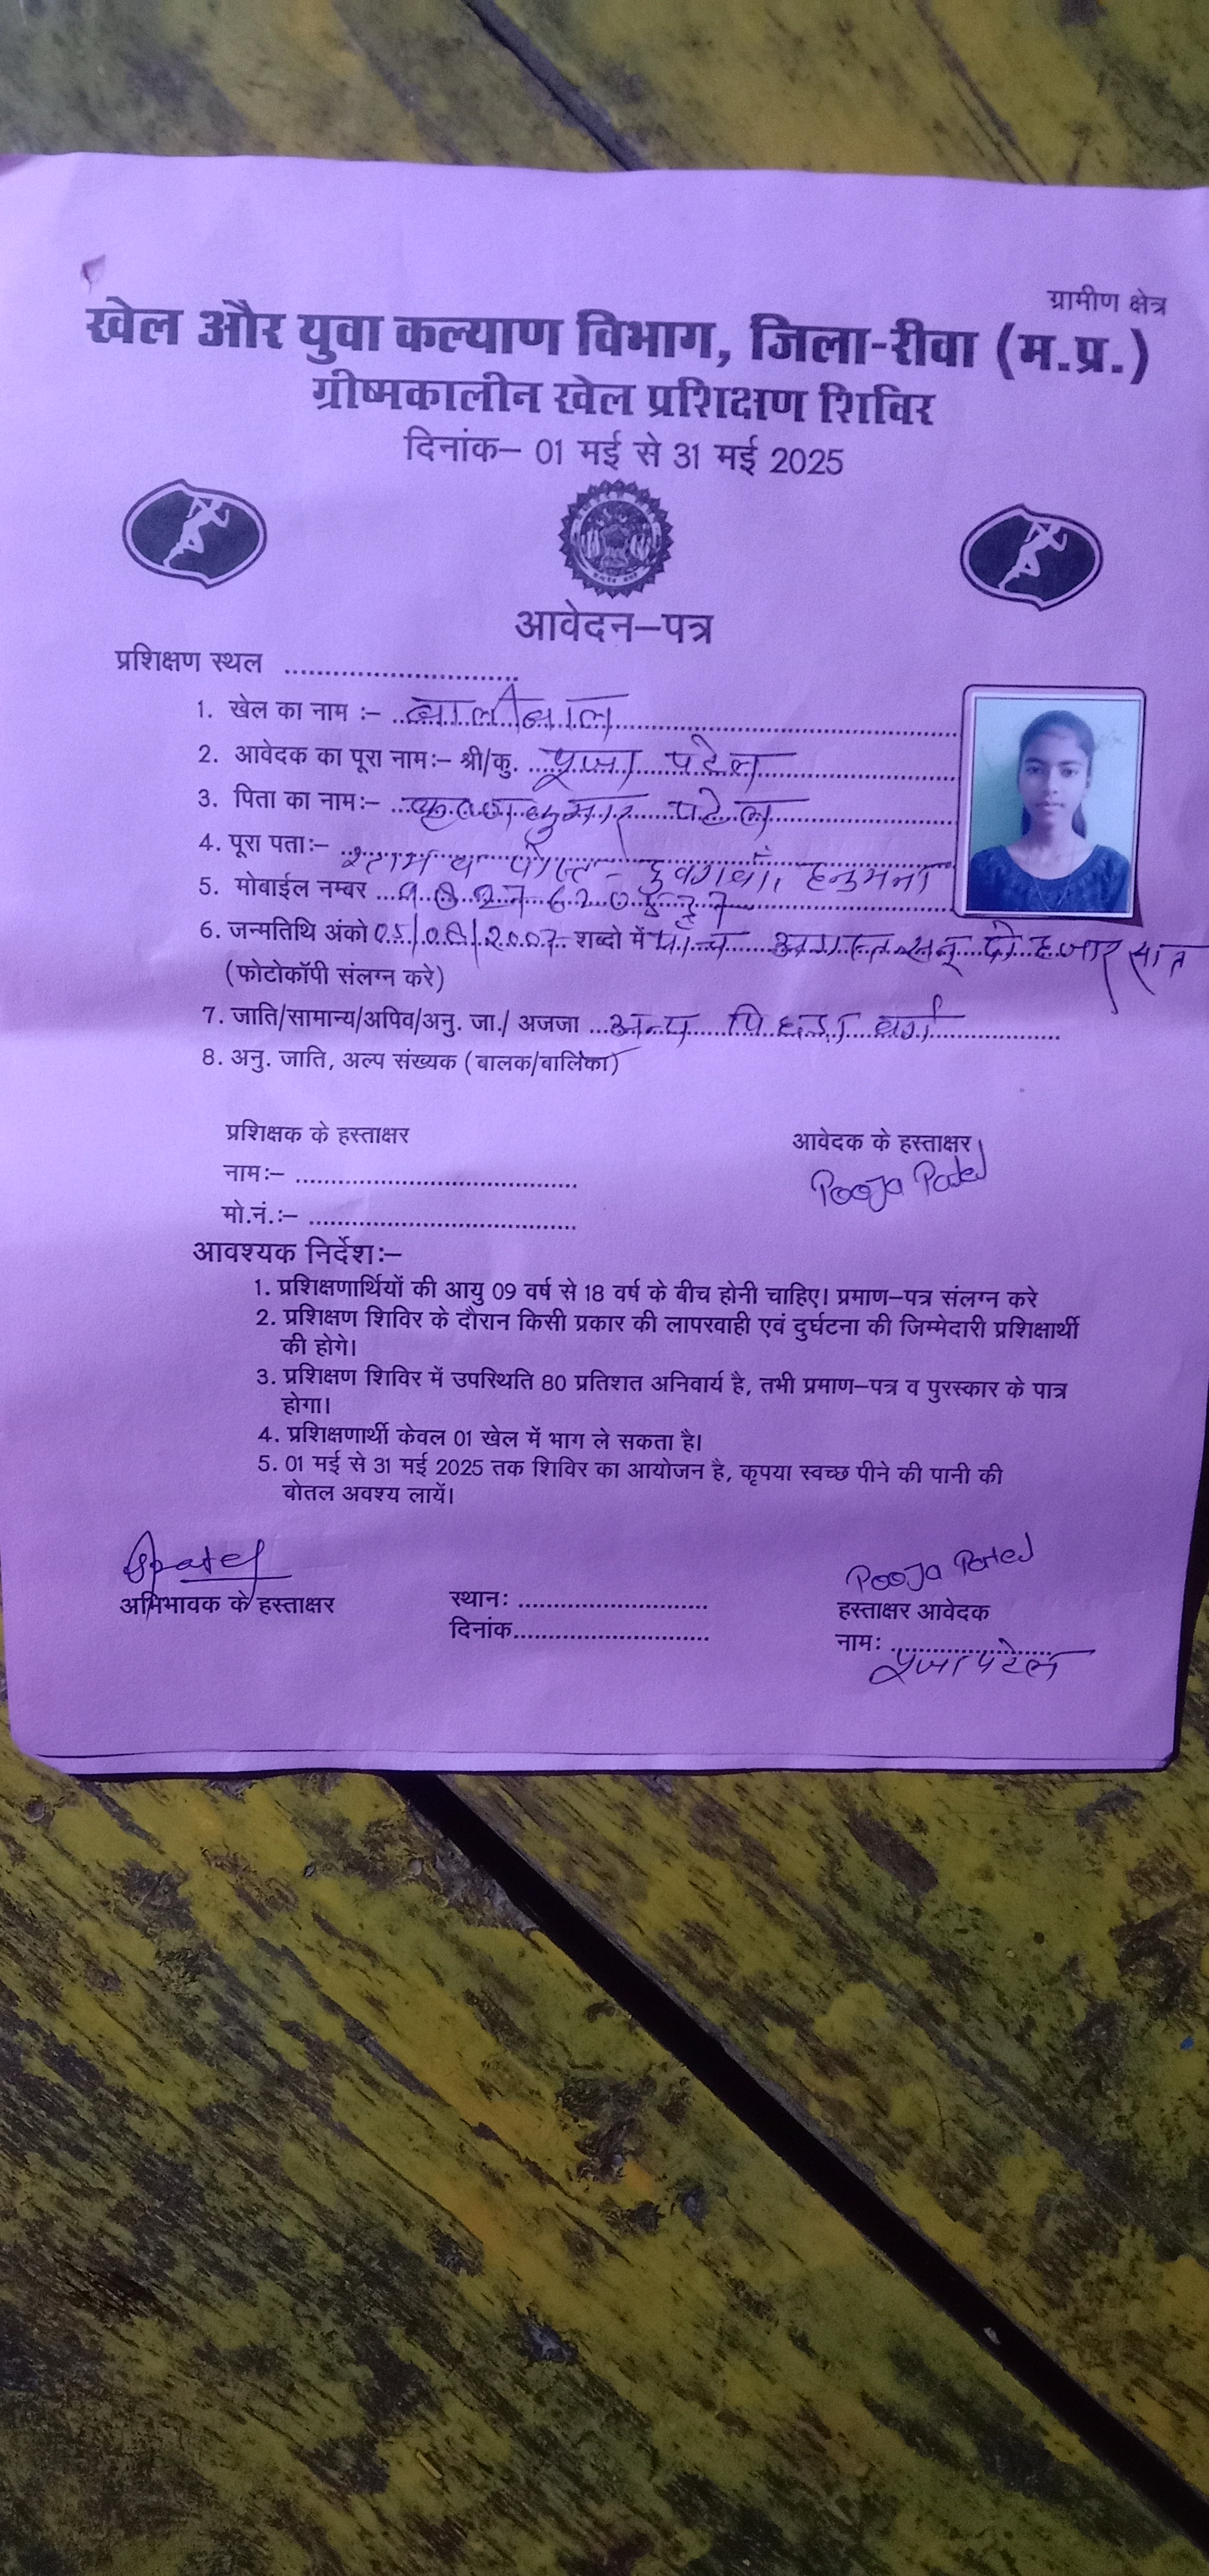 ग्रामीण क्षेत्र
खेल और युवा कल्याण विभाग, जिला-रीवा (म.प्र.)
ग्रीष्मकालीन खेल प्रशिक्षण शिविर
दिनांक– 01 मई से 31 मई 2025
आवेदन–पत्र
प्रशिक्षण स्थल ..............................
1. खेल का नाम :– बालीबाल
2. आवेदक का पूरा नाम:– श्री/कु. पूजा पटेल
3. पिता का नाम:– कृष्ण कुमार पटेल
4. पूरा पता:– ग्राम व पोस्ट - हनुमना
5. मोबाईल नम्बर
6. जन्मतिथि अंको 05/08/2007 शब्दो में पाँच अगस्त सन् दो हजार सात
(फोटोकॉपी संलग्न करे)
7. जाति/सामान्य/अपिव/अनु. जा./ अजजा अन्य पिछड़ा वर्ग
8. अनु. जाति, अल्प संख्यक (बालक/बालिका)
प्रशिक्षक के हस्ताक्षर
आवेदक के हस्ताक्षर
Pooja Patel
नाम:– ........................................
मो.नं.:– ......................................
आवश्यक निर्देश:–
1. प्रशिक्षणार्थियों की आयु 09 वर्ष से 18 वर्ष के बीच होनी चाहिए। प्रमाण–पत्र संलग्न करे
2. प्रशिक्षण शिविर के दौरान किसी प्रकार की लापरवाही एवं दुर्घटना की जिम्मेदारी प्रशिक्षार्थी
की होगे।
3. प्रशिक्षण शिविर में उपस्थिति 80 प्रतिशत अनिवार्य है, तभी प्रमाण–पत्र व पुरस्कार के पात्र
होगा।
4. प्रशिक्षणार्थी केवल 01 खेल में भाग ले सकता है।
5. 01 मई से 31 मई 2025 तक शिविर का आयोजन है, कृपया स्वच्छ पीने की पानी की
बोतल अवश्य लायें।
Pooja Patel
अभिभावक के हस्ताक्षर
स्थान: ...........................
हस्ताक्षर आवेदक
दिनांक............................
नाम: पूजा पटेल